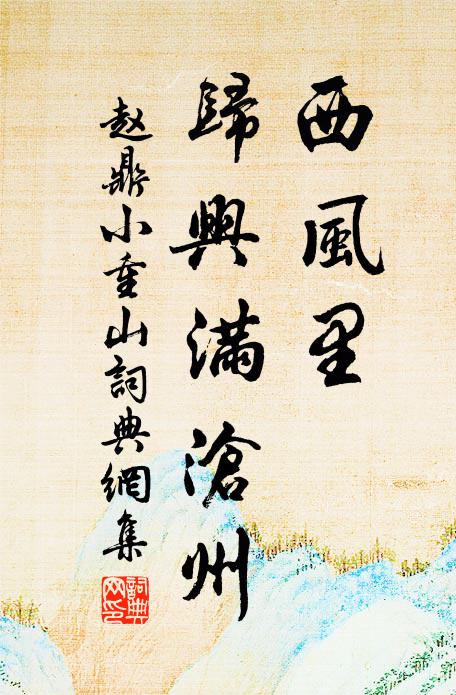 西風里
歸興满滄州
赵鼎小重山詞典網集
詞典网印